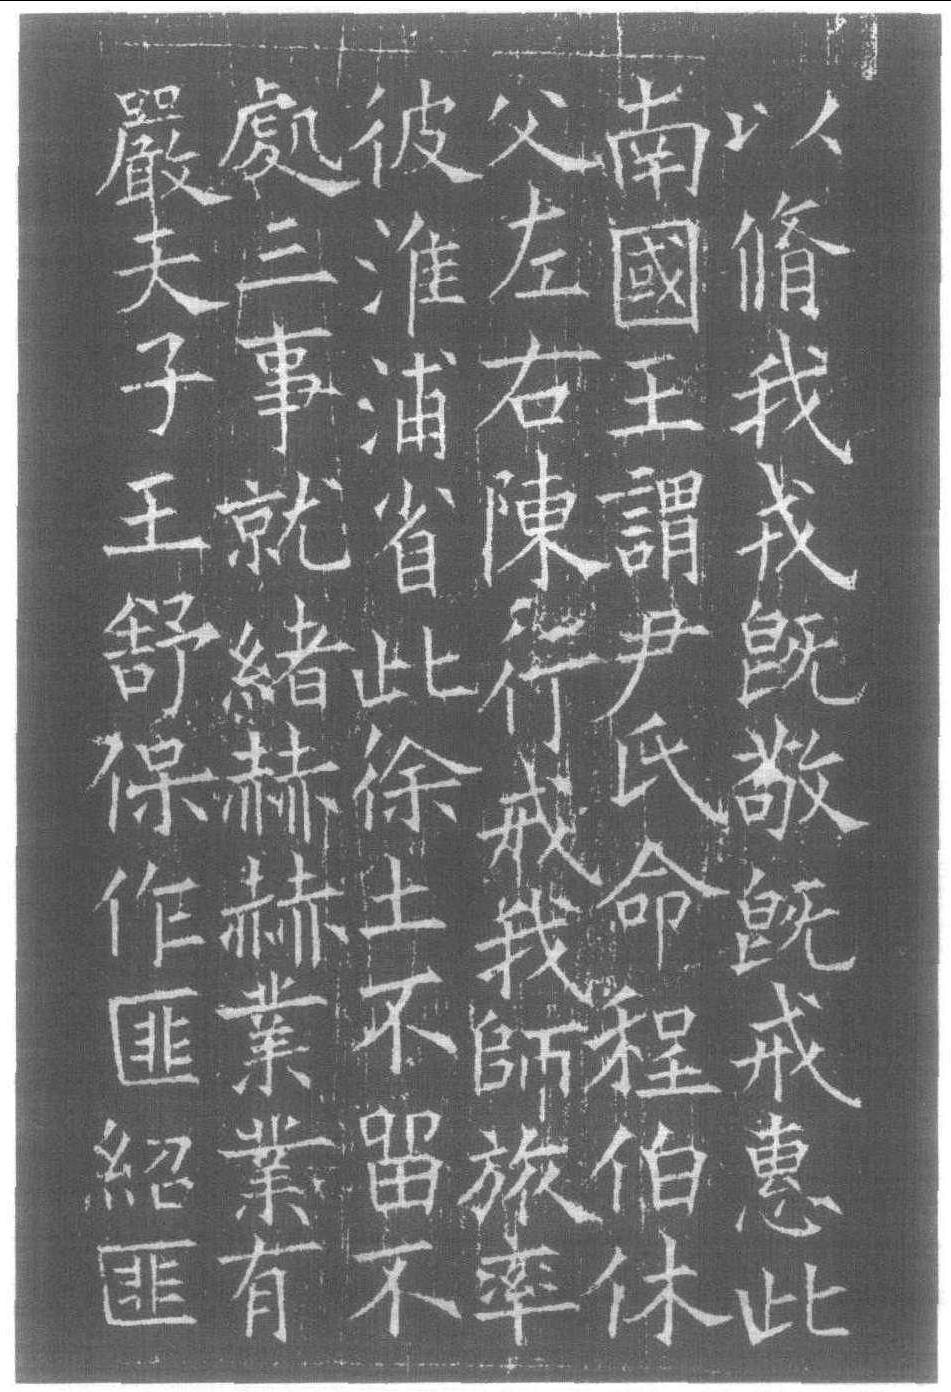 以脩我戎既敬既戒惠此
南國王謂尹氏命程伯休
父左右陳行戒我師旅率
彼淮浦省此徐土不留不
處三事就緒赫赫業業有
嚴夫子王舒保作匪紹匪